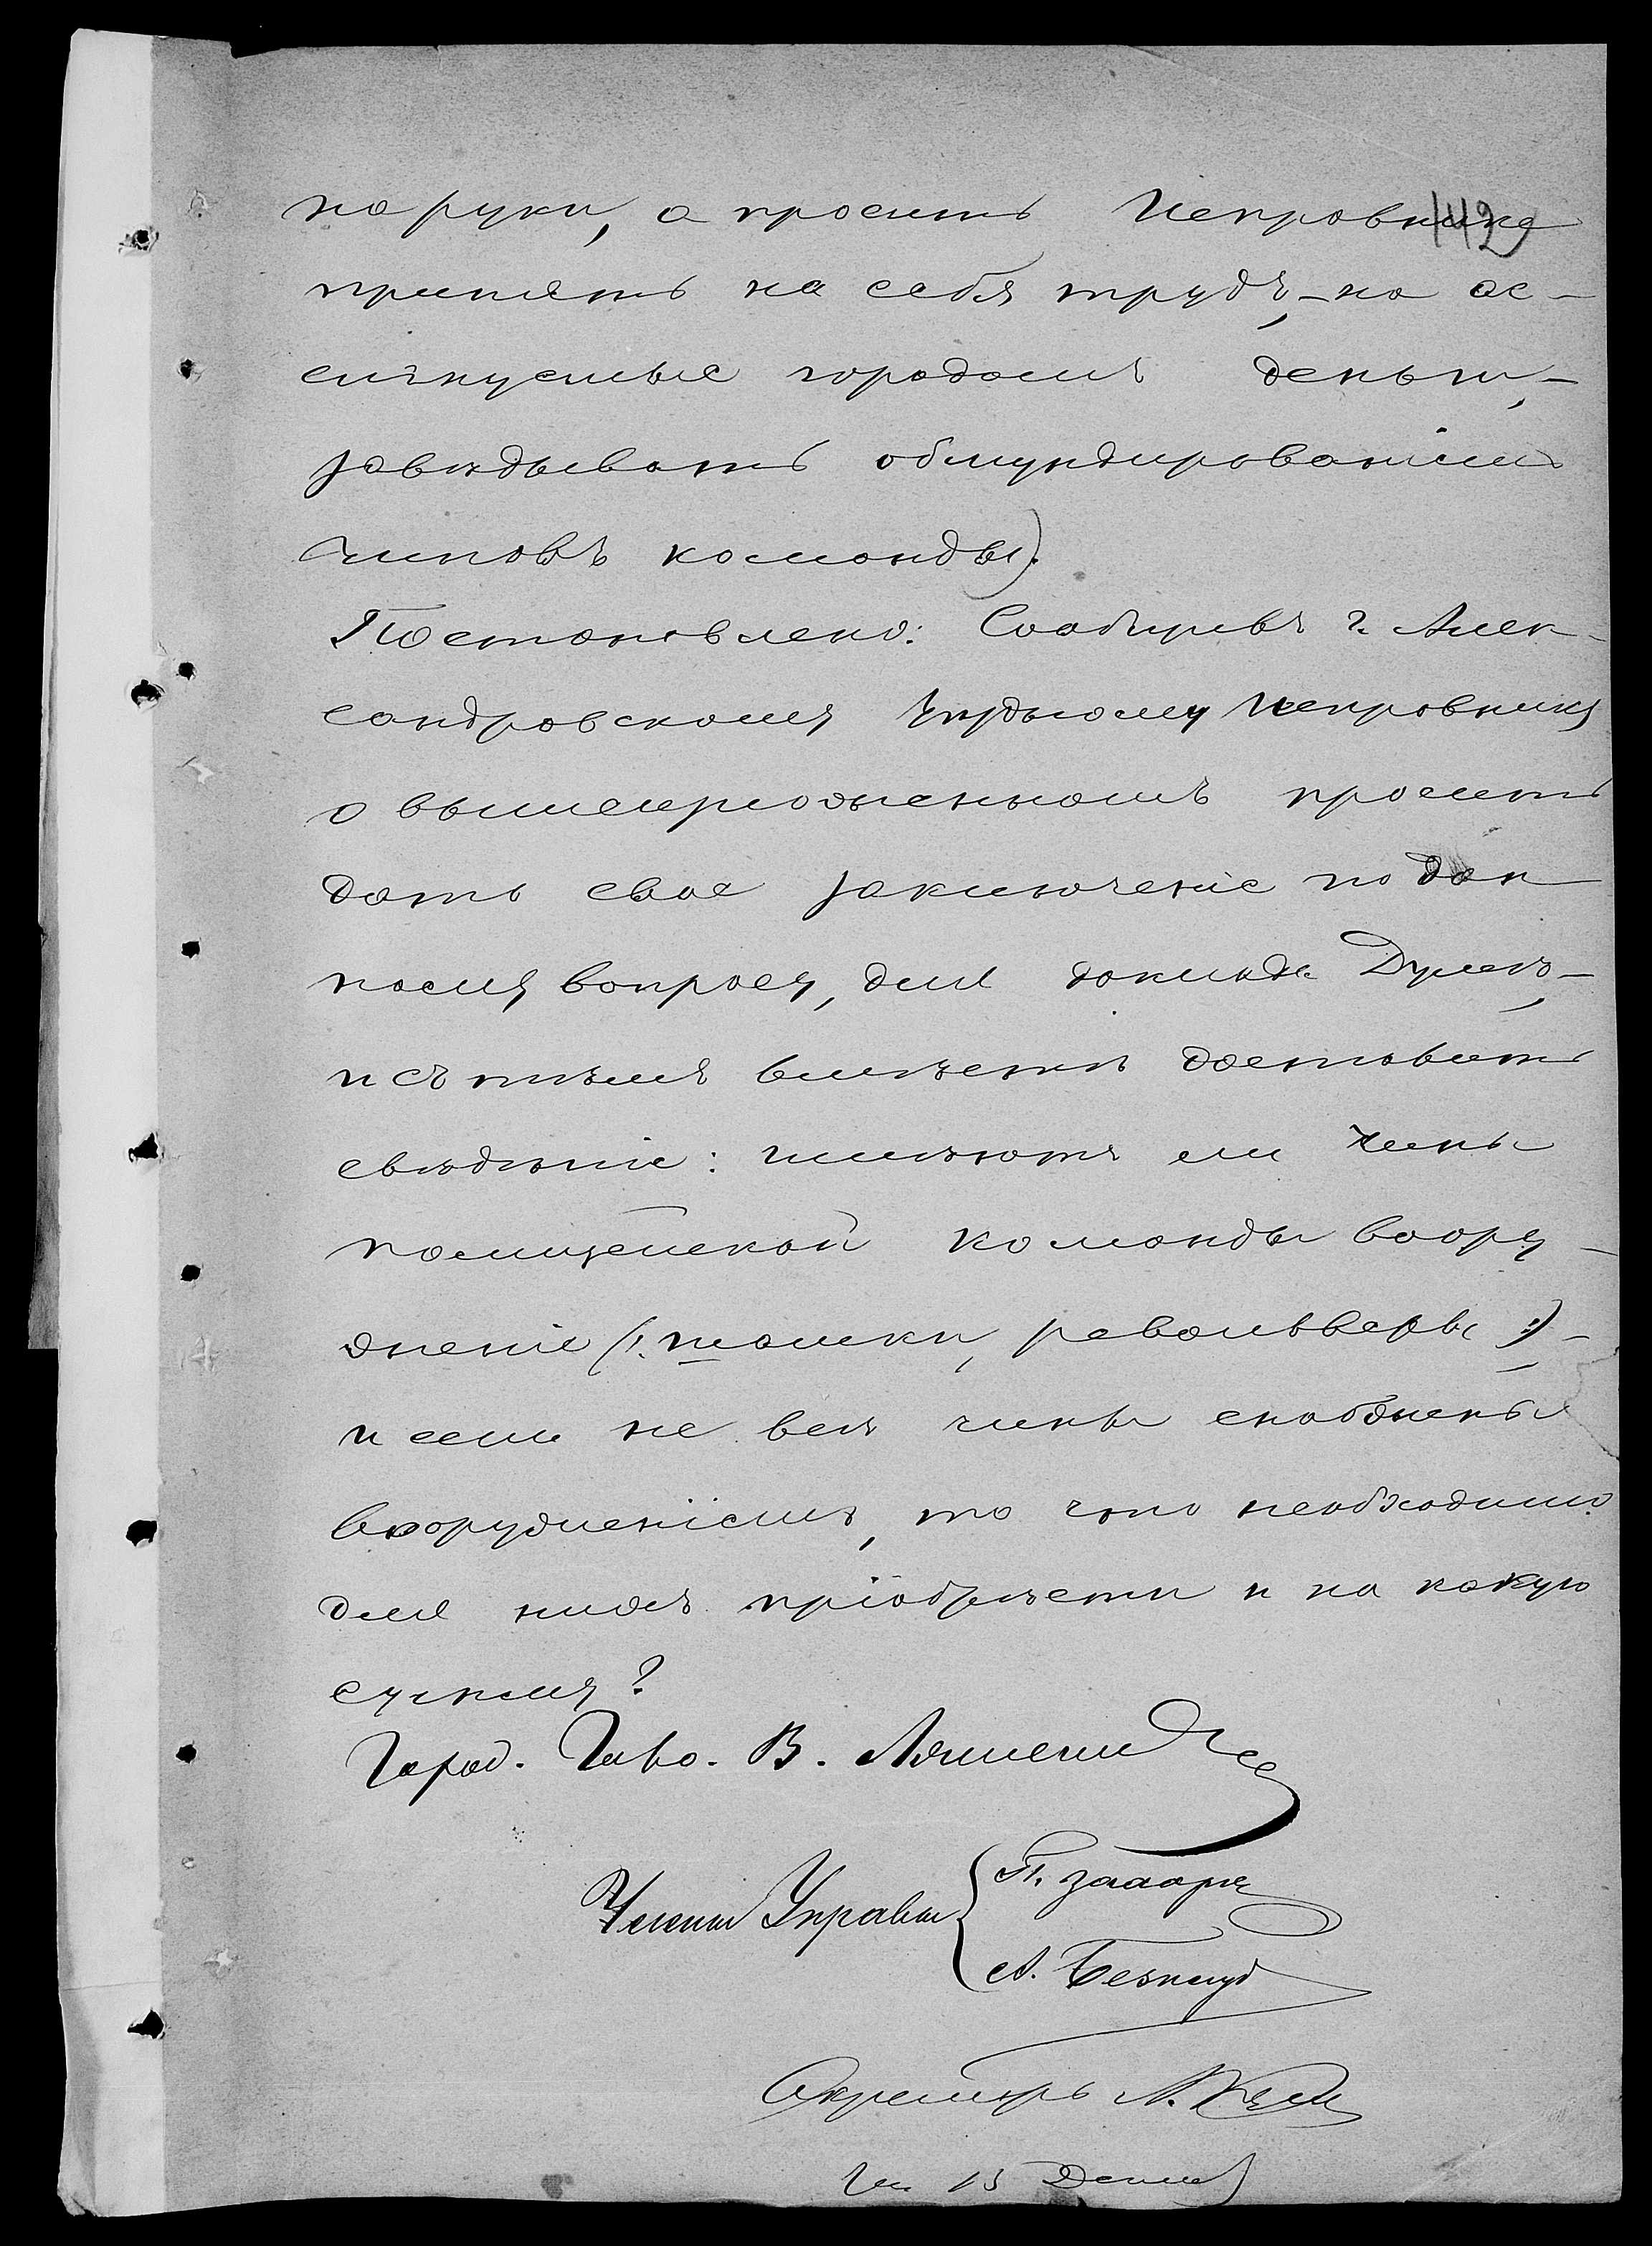 на руки, а просить Исправника
142
принять на себя трудъ, - на ас-
сигнуемые городомъ деньги, -
завѣдывать обмундированіемъ
чиновъ команды).
Постановлено: Сообщивъ г. Алек-
сандровскому Уѣздному Исправнику
о вышеизложенномъ просить
дать свое заключеніе по дан
ному вопросу, для доклада Думѣ, -
и съ тѣмъ вмѣстѣ доставить
свѣдѣніе: имѣютъ ли чины
полицейской команды воору-
женіе (: шашки, револьверы :), -
и если не всѣ чины снабжены
вооруженіемъ, то что необходимо
для нихъ пріобрѣсти и на какую
сумму?
Город. Голо. В.
Члены Управы
П.
А.
Секретарь